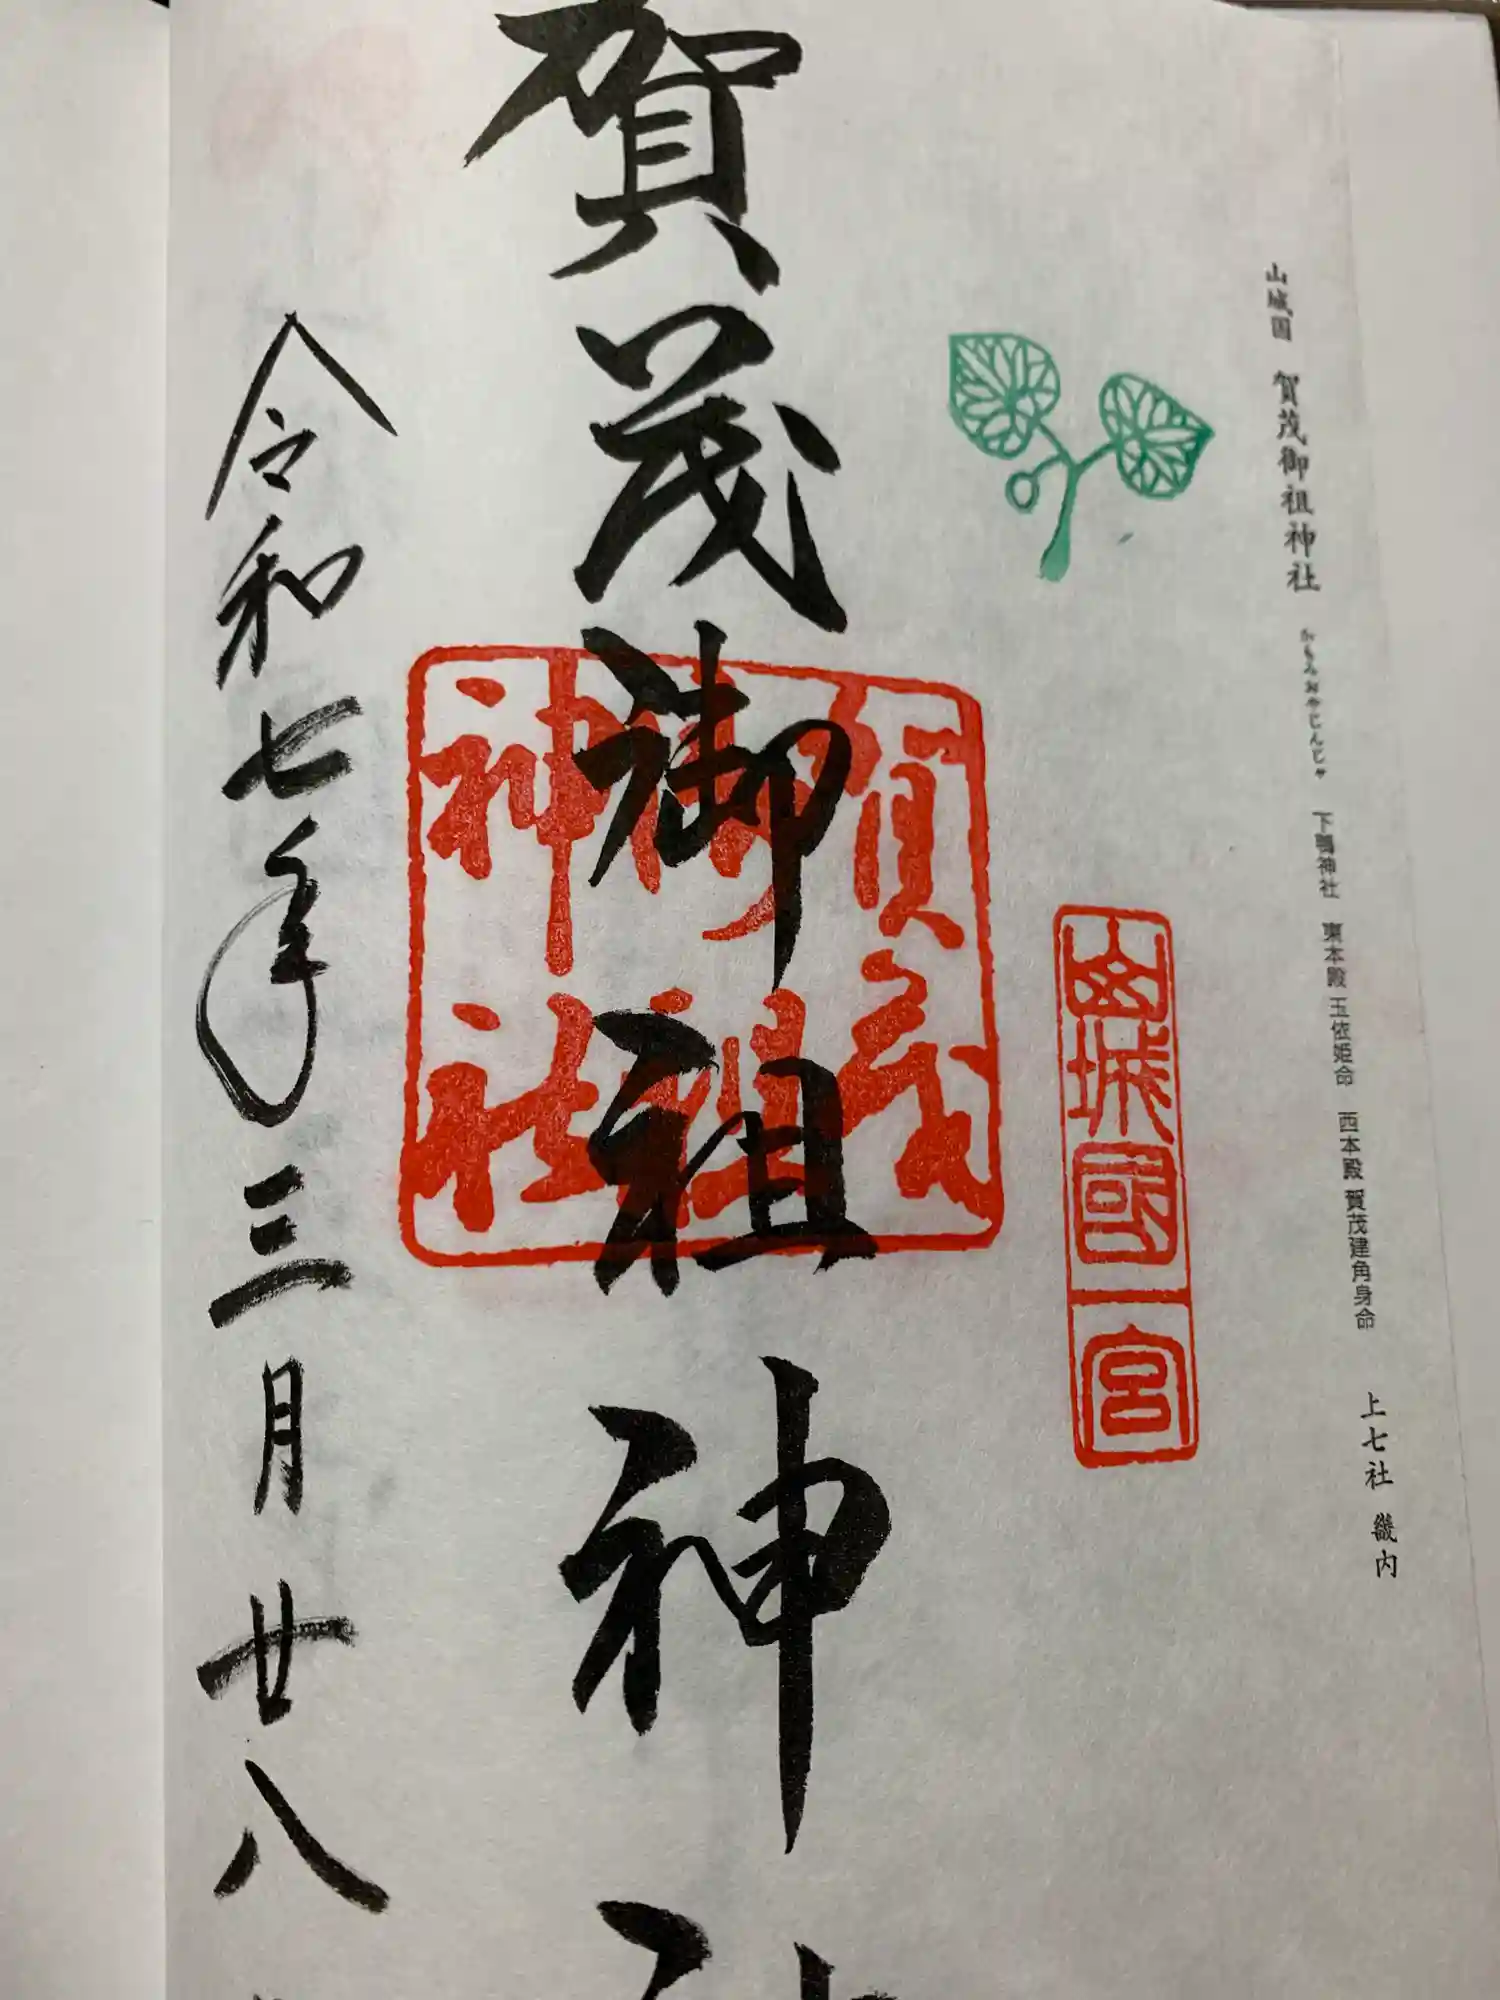 山城国 賀茂御祖神社 かもみおやじんじゃ 下鴨神社 東本殿 玉依姫命 西本殿 賀茂建角身命 上七社 畿内
山城國一宮
賀茂御祖神社
賀茂御祖神
令和七年三月廿八